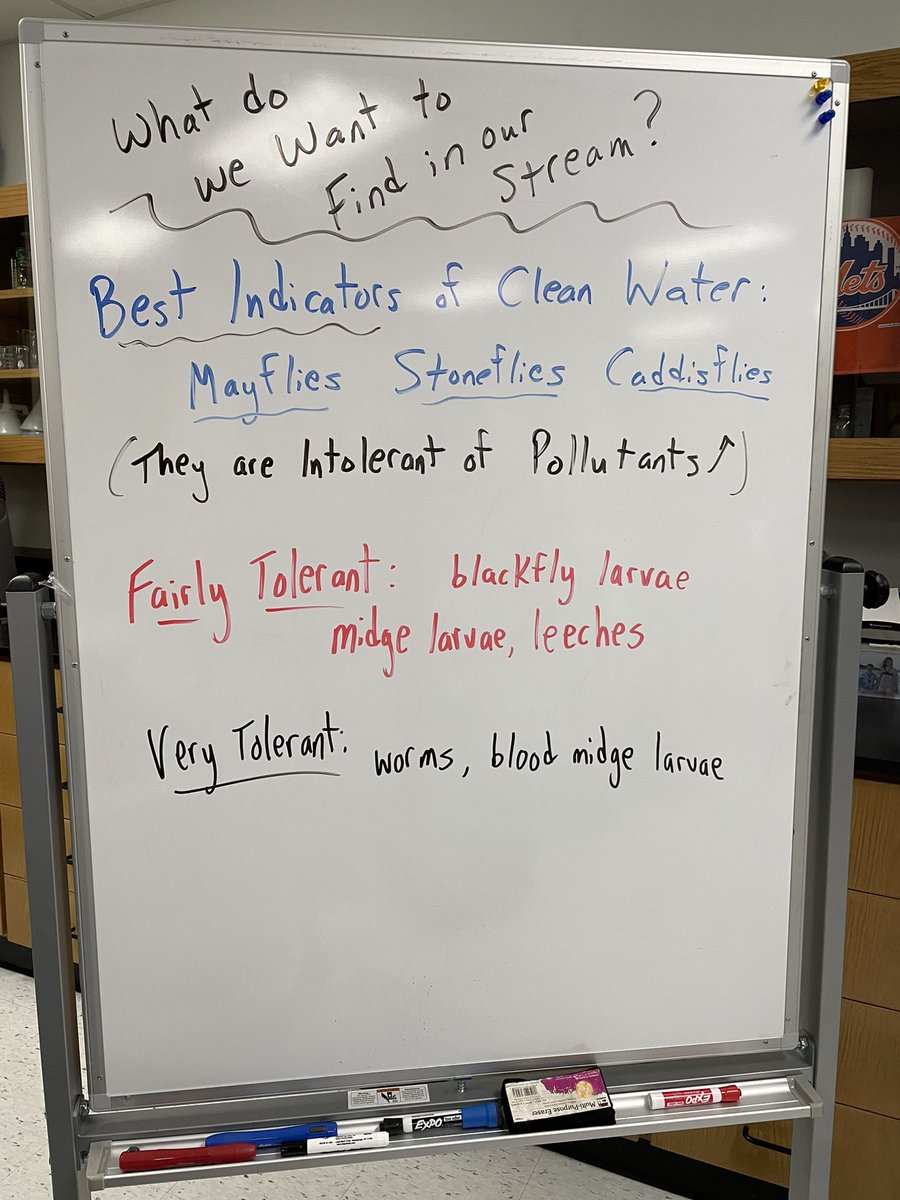 What do
we Want to
Find in our
Stream?
Best Indicators of Clean Water:
Mayflies Stoneflies Caddisflies
(They are Intolerant of Pollutants ↑)
Fairly Tolerant: blackfly larvae
midge larvae, leeches
Very Tolerant: worms, blood midge larvae
Mets
Multi-Purpose Eraser
EXPO
EXPO